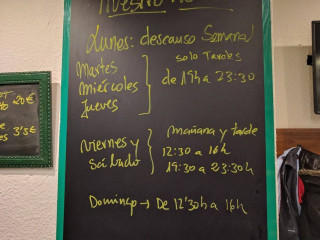 Nuestro
Lunes: descauso Semanal
solo Tardes
Martes
Miércoles
Jueves
de 19h a 23:30
Viernes y
Sábado
mañana y tarde
12:30 a 16h
19:30 a 23:30h
Domingo → De 12'30h a 16h
20€
3'5€